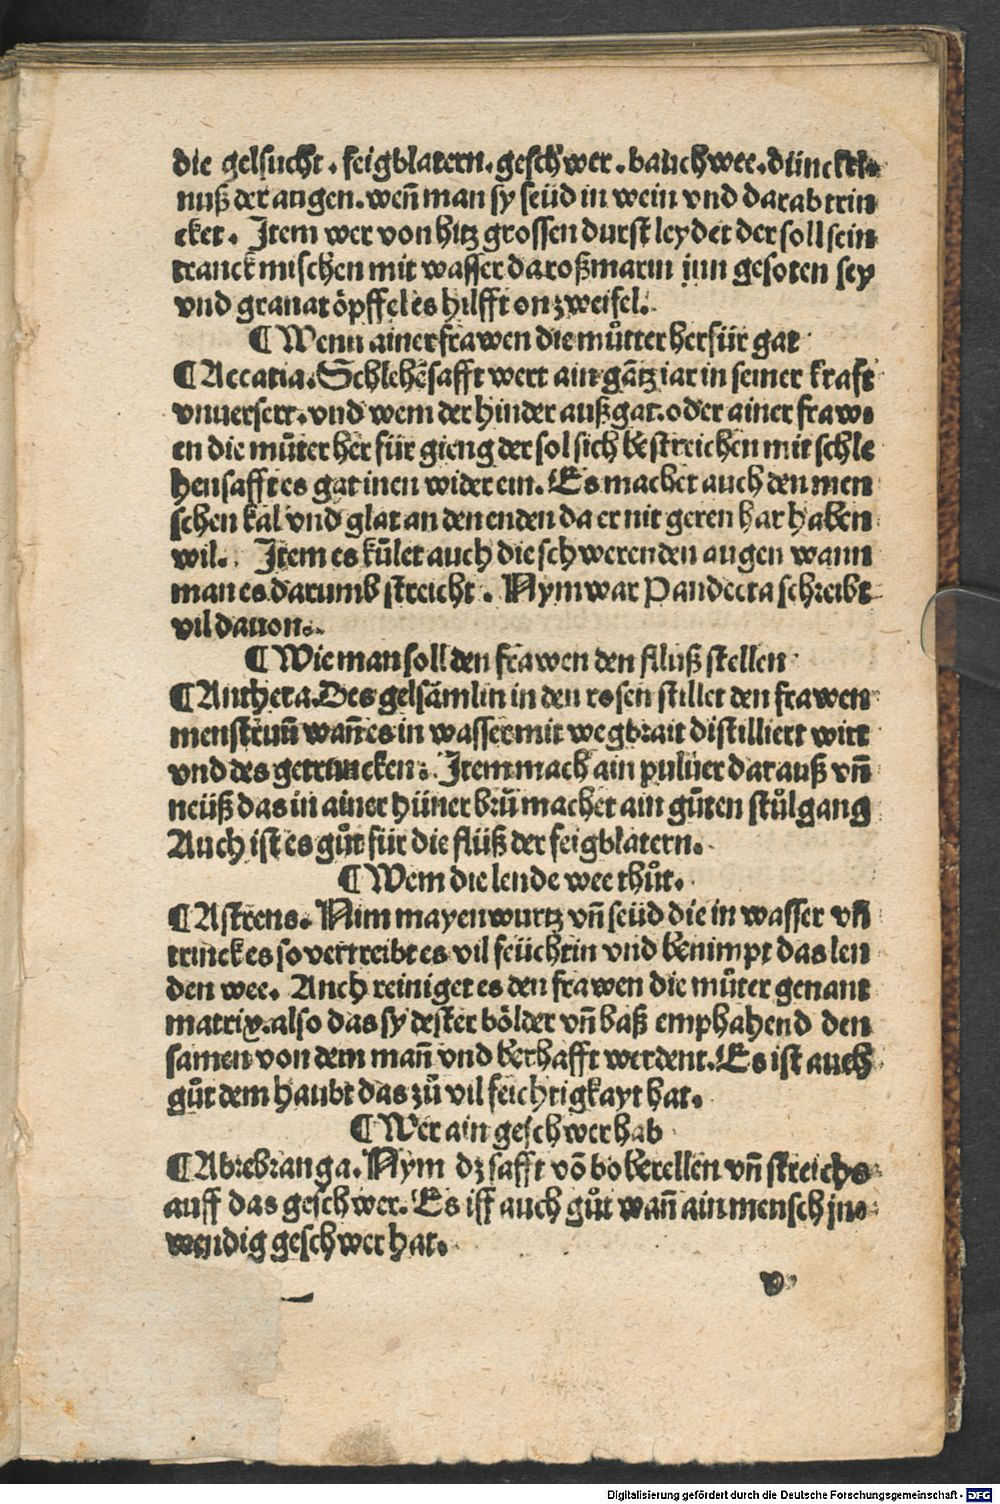 die gelsucht. feigblatern. geschwer. bauchwee. dünckel⸗
nuß der augen. wen̄ man sy seüd in wein vnd darab trin
cket. Item wer von hitz grossen durst leydet der soll sein
tranck mischen mit wasser da roßmarin jnn gesoten sey
vnd granatöpffel es hilfft on zweifel.
¶ Wenn ainer frawen die můtter herfür gat
¶ Accatia. Schlehēsafft wert ain gātz iar in seiner kraft
vnuersert. vnd wem der hinder außgat. oder ainer fraw⸗
en die můter her für gieng der sol sich bestreichen mit schle
hensafft es gat inen wider ein. Es machet auch den men
schen kal vnd glat an den enden da er nit geren har haben
wil. Item es kůlet auch die schwerenden augen wann
man es darumb streicht. Nym war Pandecta schreibt
vil dauon.
¶ Wie man soll den frawen den fluß stellen
¶ Anthera. Des gelsămlin in den rosen stillet den frawen
menstruū wan̄ es in wasser mit wegbrait distilliert wirt
vnd des getruncken. Item mach ain puluer darauß vn̄
neüß das in ainer hüner brů machet ain gůten stůlgang
Auch ist es gůt für die flüß der feigblatern.
¶ Wem die lende wee thůt.
¶ Astrens. Nim mayenwurtz vn̄ seüd die in wasser vn̄
trinck es so vertreibt es vil feüchtin vnd benimpt das len
den wee. Auch reiniget es den frawen die můter genant
matrix. also das sy dester bölder vn̄ baß emphahend den
samen von dem man̄ vnd berhafft werdent. Es ist auch
gůt dem haubt das zů vil feichtigkayt hat.
¶ Wer ain geschwer hab
¶ Abrebranga. Nym dz safft vō boberellen vn̄ streichs
auff das geschwer. Es iff auch gůt wan̄ ain mensch jn⸗
wendig geschwer hat.
v
Digitalisierung gefördert durch die Deutsche Forschungsgemeinschaft - DFG